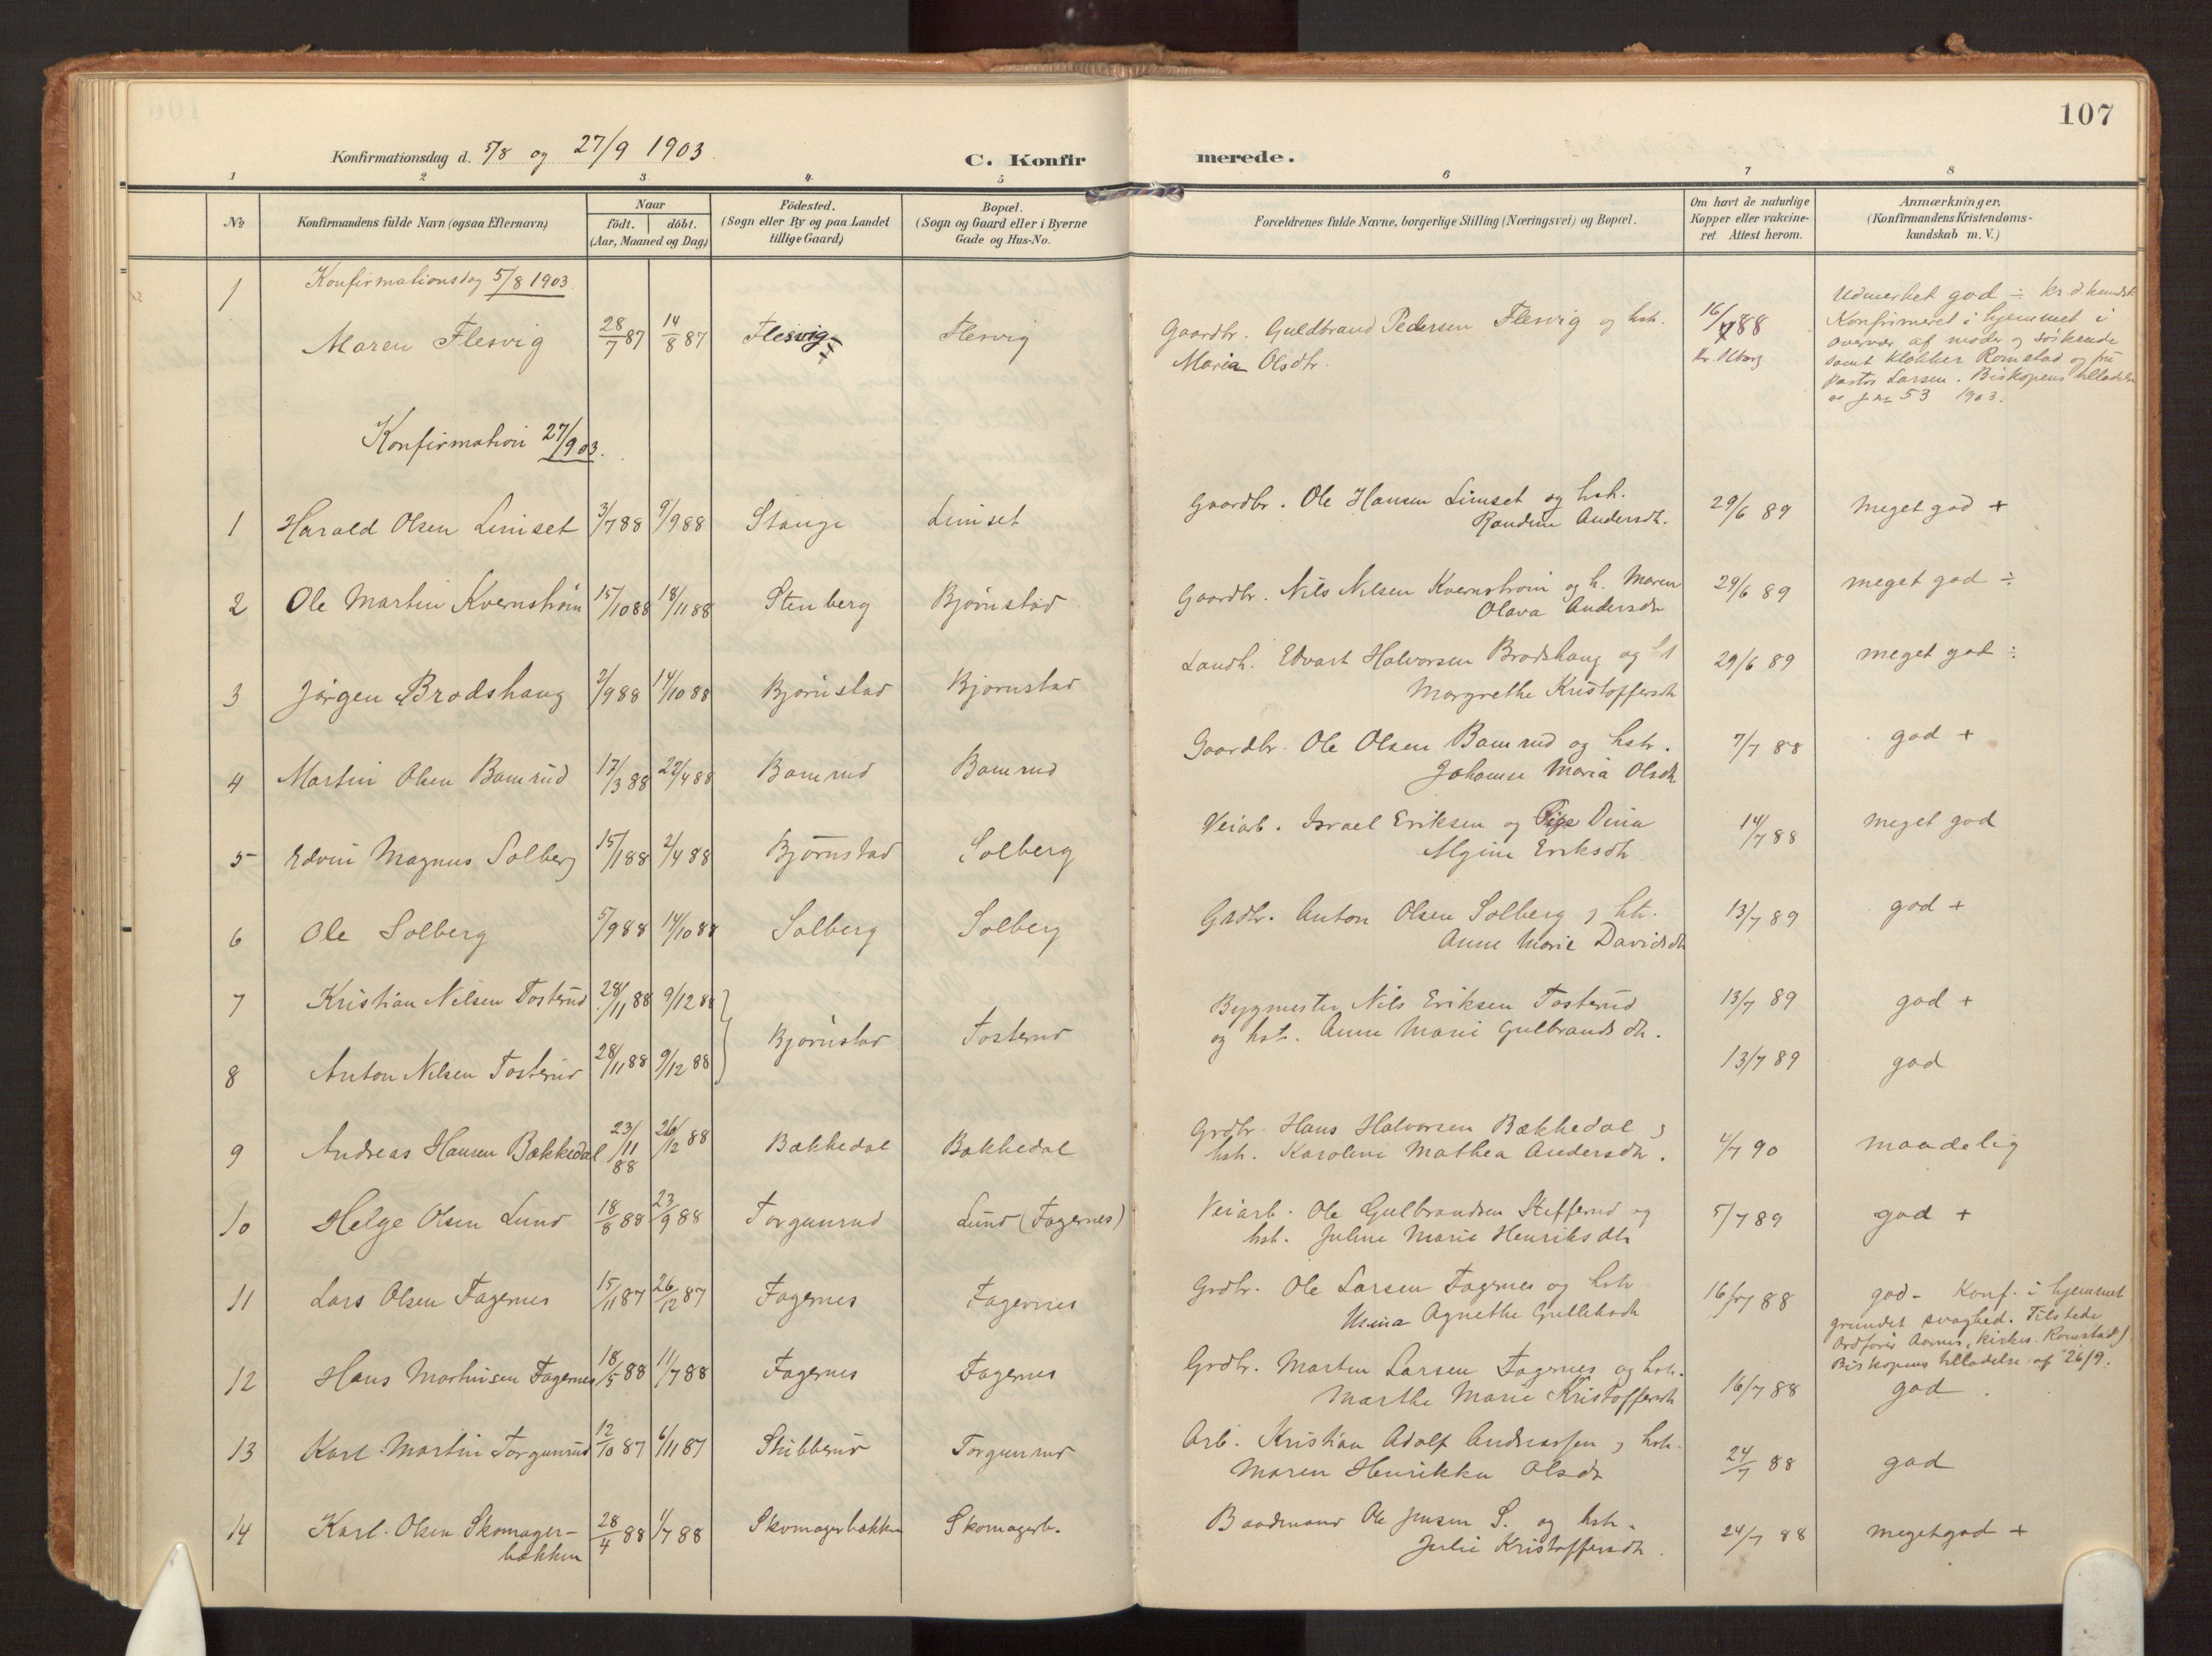 107
Konfirmationsdag d. 5/8 og 27/9 1903.
C. Konfirmerede.
1 2 3 4 5 6 7 8
№
Konfirmandens fulde Navn (ogsaa Efternavn)
Naar
födt. döbt.
(Aar, Maaned og Dag)
Födested.
(Sogn eller By og paa Landet
tillige Gaard)
Bopæl.
(Sogn og Gaard eller i Byerne
Gade og Hus-No.
Forældrenes fulde Navne, borgerlige Stilling (Næringsvei) og Bopæl.
Om havt de naturlige
Kopper eller vakcine-
ret. Attest herom.
Anmærkninger,
(Konfirmandens Kristendoms-
kundskab m. V.)
Konfirmationsdag 5/8 1903
1 Maren Flesvig 28/7 87 14/8 87 Flesvig Flesvig
Gaardbr. Guldbrand Pedersen Flesvig og hstr.
Maria Olsdtr.
16/7 88
Udmerket god ÷ kr.d.kundsk
Konfirmeret i hjemmet i
overvær af moder og söskende
samt klokker Romstad og fru
pastor Larsen. Biskopens tilladelse
se j.nr 53 1903.
Konfirmation 27/9 03.
1 Harald Olsen Limset 3/7 88 9/9 88 Stange Limset
Gaardbr. Ole Hansen Limset og hstr.
Randine Andersdtr.
29/6 89 Meget god +
2 Ole Martin Kvernstrøm 15/10 88 18/11 88 Stenberg Bjørnstad
Gaardbr. Nils Nilsen Kvernstrøm og h. Maren
Olava Andersdtr
29/6 89 meget god ÷
3 Jørgen Brodshaug 2/9 88 14/10 88 Bjørnstad Bjørnstad
Landh. Edvart Halvorsen Brodshaug og
Margrethe Kristoffersdtr
29/6 89 meget god ÷
4 Martin Olsen Bamrud 17/3 88 22/4 88 Bamrud Bamrud
Gaardbr. Ole Olsen Bamrud og hstr.
Johanne Maria Olsdtr
7/7 88 god +
5 Edvin Magnus Solberg 15/1 88 2/4 88 Bjørnstad Solberg
Veiarb. Israel Eriksen og Pige Dina
Algine Eriksdtr
14/7 88 meget god
6 Ole Solberg 5/9 88 14/10 88 Solberg Solberg
Grdbr. Anton Olsen Solberg og hstr.
Anne Marie Davidsdtr
13/7 89 god +
7 Kristian Nilsen Tosterud 28/11 88 9/12 88
Bjørnstad Tosterud
Bygmester Nils Eriksen Tosterud
og hst. Anne Marie Gulbrandsdtr.
13/7 89 god +
8 Anton Nilsen Tosterud 28/11 88 9/12 88
13/7 89 god
9 Andreas Hansen Bækkedal 23/11 88 26/12 88 Bækkedal Bækkedal
Grdbr. Hans Halvorsen Bækkedal og
hstr. Karoline Mathea Andersdtr.
4/7 90 maadelig
10 Helge Olsen Lund 18/8 88 23/9 88 Torgunrud Lund (Fagernes)
Veiarb. Ole Gulbrandsen Stefferud og
hst. Juline Marie Henriksdtr
5/7 89 god +
11 Lars Olsen Fagernes 15/11 87 26/12 87 Fagernes Fagernes
Grdbr. Ole Larsen Fagernes og hstr
Agnethe
16/7 88
god - Konf. i hjemmet
grundet svaghed. Tilstede
Ordfører kirkes. Romstad
Biskopens tilladelse af 26/9.
12 Hans Martinsen Fagernes 18/5 88 11/7 88 Fagernes Fagernes
Grdbr. Martin Larsen Fagernes og hstr.
Marthe Marie Kristoffersdtr
16/7 88 god
13 Karl Martin Torgunrud 12/10 87 6/11 87 Stibberud Torgunrud
Arb. Kristian Adolf Andreassen og hstr.
Maren Henrikka Olsdtr
24/7 88 god
14 Karl Olsen Skomager-
bækken 28/4 88 1/7 88 Skomagerbækken Skomagerb.
Baadmand Ole Jensen S. og hstr.
Julie Kristoffersdtr.
24/7 88 meget god +